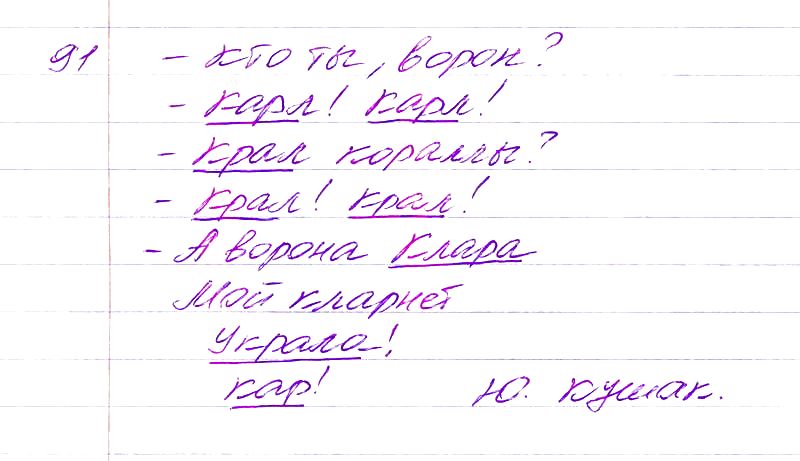 91 - Кто ты, ворон?
- Карл! Карл!
- Крал кораллы?
- Крал! Крал!
- А ворона Клара
Мой кларнет
Украла!
Кар!
Ю. Кушак.